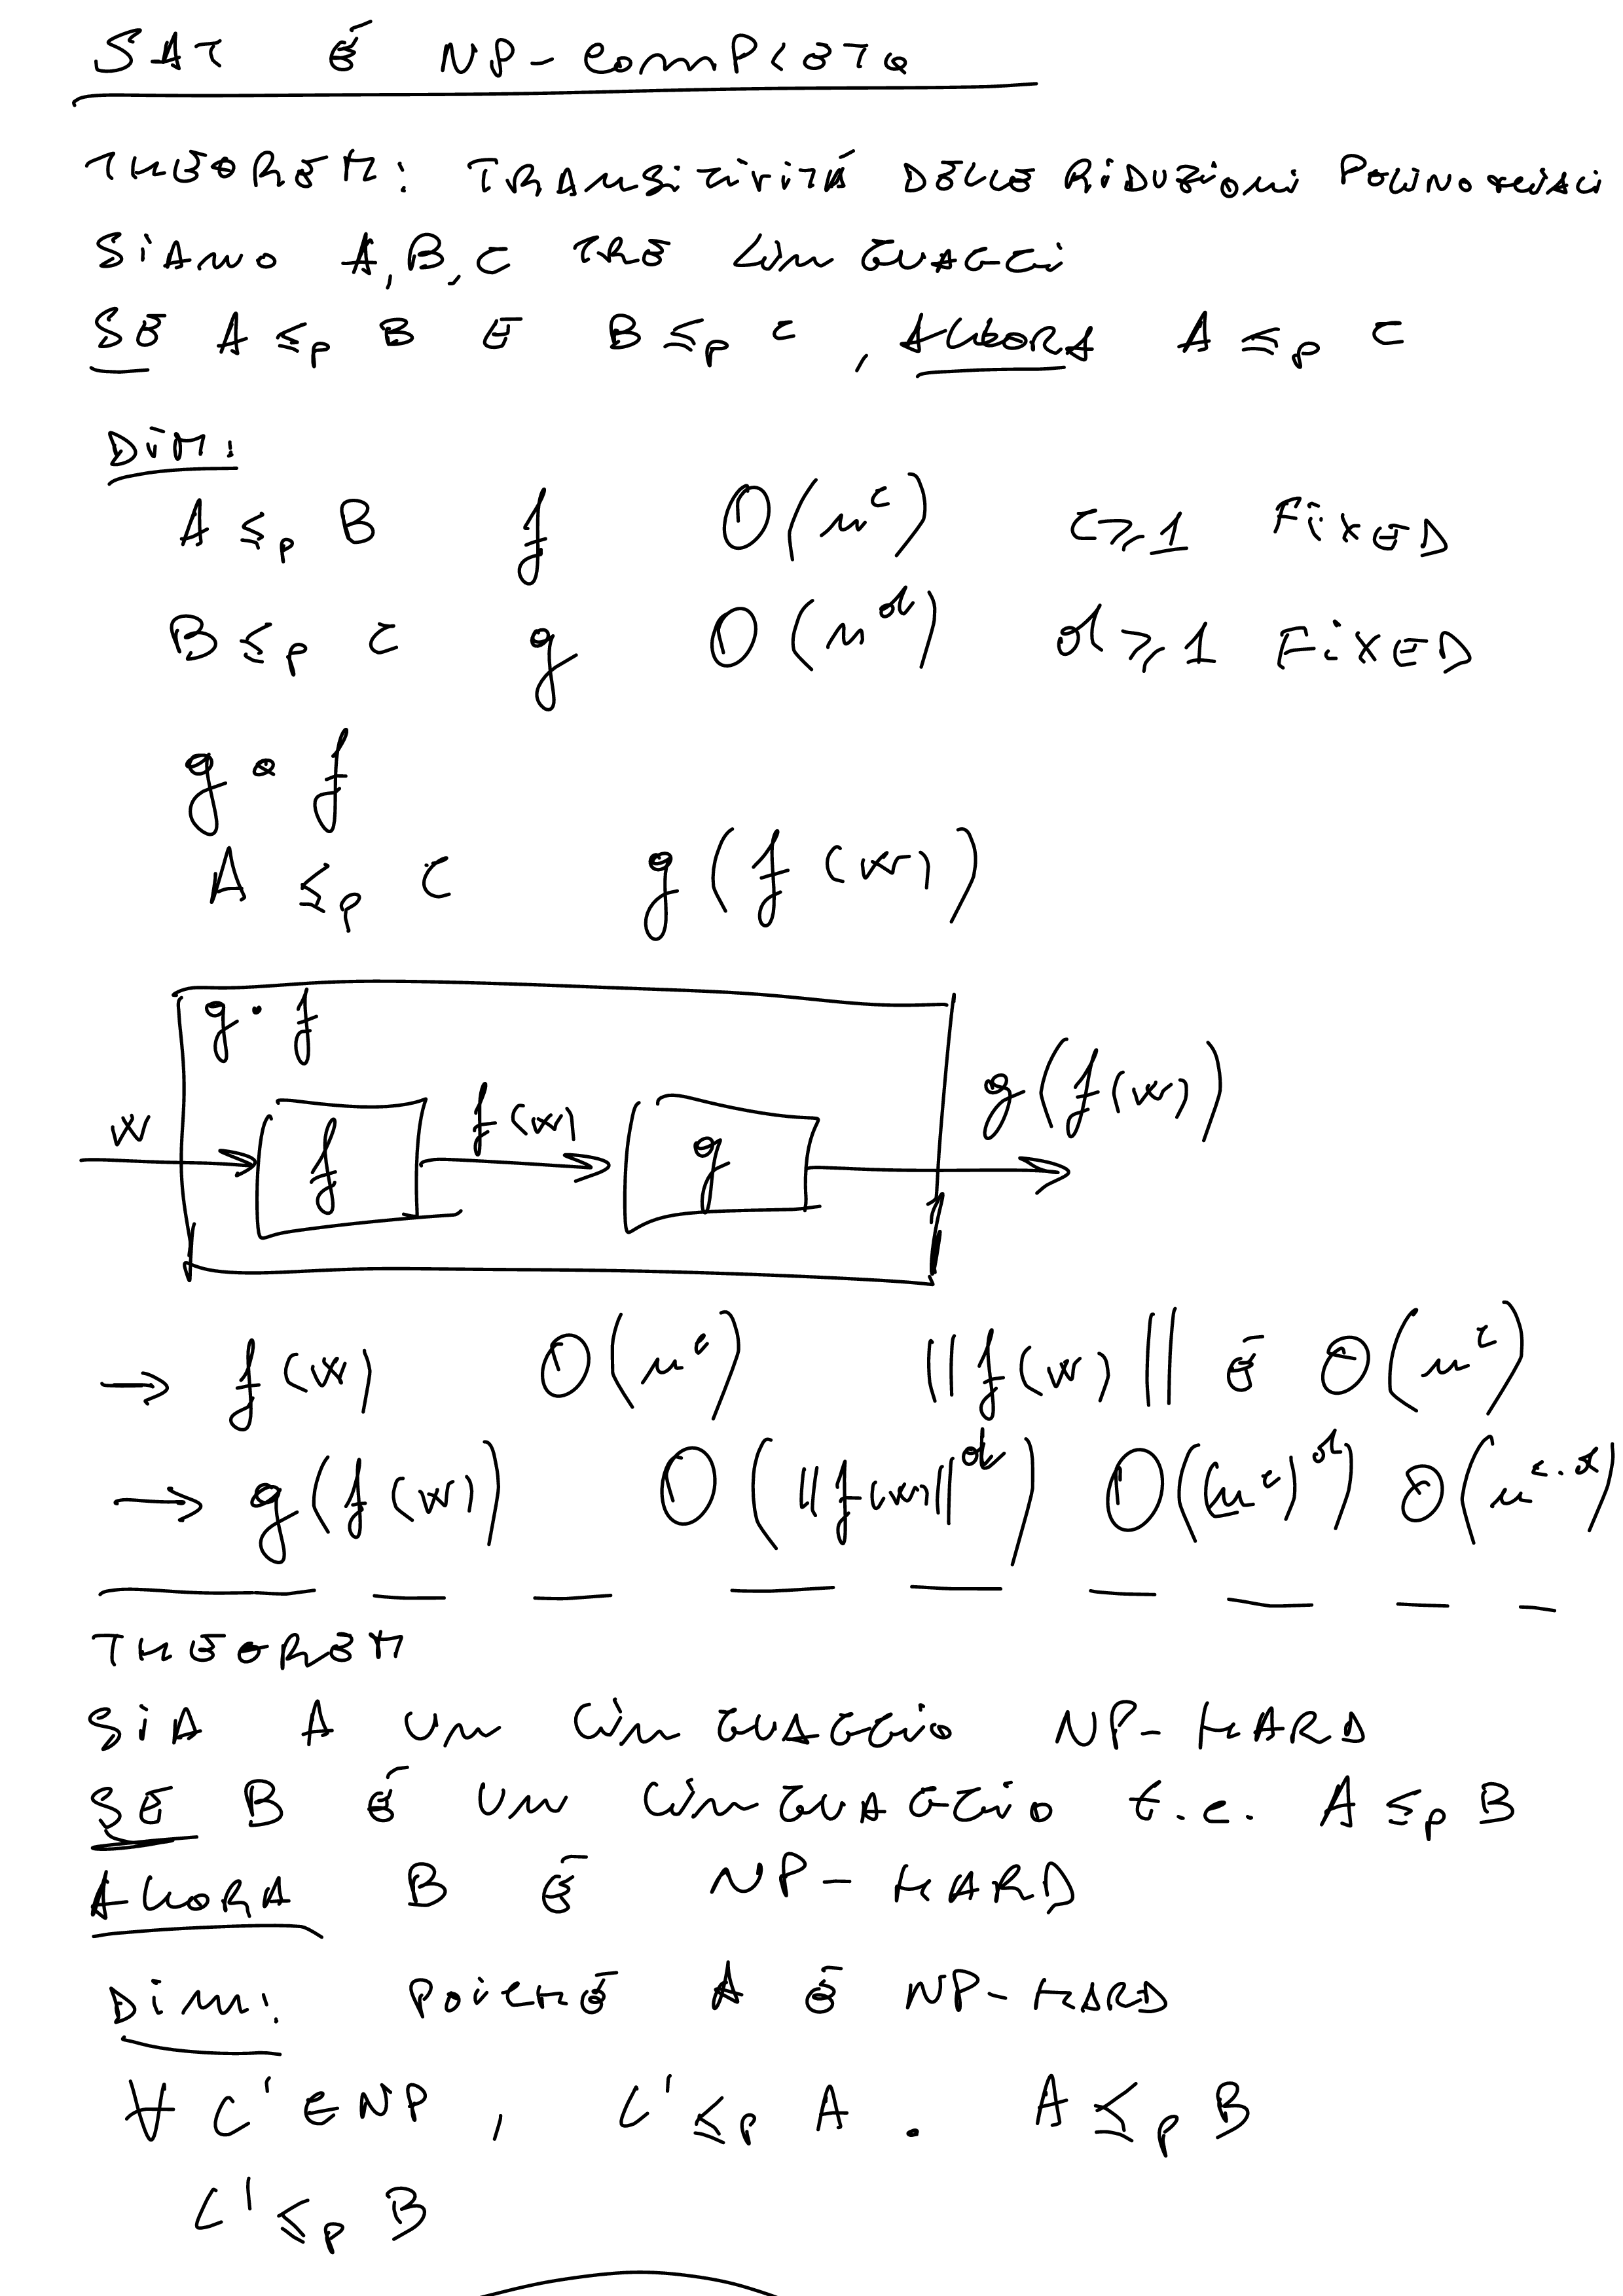 SAT É NP-COMPLETO
THEOREM: TRANSITIVITÁ DELLE RIDUZIONI POLINOMIALI
SIANO A, B, C TRE LINGUAGGI
SE A ≤p B E B ≤p C, ALLORA A ≤p C
DIM:
A ≤p B f O(n^c) c ≥ 1 FIXED
B ≤p C g O(n^d) d ≥ 1 FIXED
g ∘ f
A ≤p C g(f(w))
g ∘ f
w f f(w) g g(f(w))
→ f(w) O(n^c) ||f(w)|| É O(n^c)
→ g(f(w)) O(||f(w)||^d) O((n^c)^d) O(n^{c·d})
THEOREM
SIA A UN LINGUAGGIO NP-HARD
SE B É UN LINGUAGGIO t.c. A ≤p B
ALLORA B É NP-HARD
DIM: POICHÉ A É NP-HARD
∀ L' ∈ NP, L' ≤p A. A ≤p B
L' ≤p B